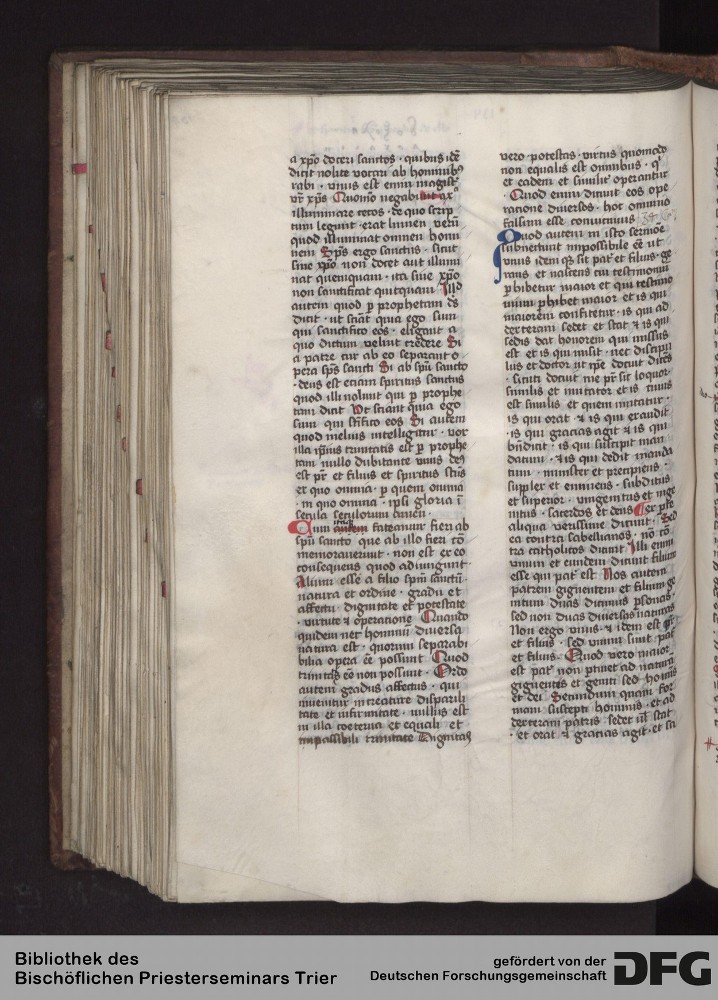 a xpo doceri sanctos · quibus idē
dicit nolite vocari ab hominibꝰ
rabi · vnus est enim magist͛
vr̄ xp̄s Quomo negabit
illuminare cecos · de quo scrip
tum legunt · erat lumen verū
quod illuminat omnem homi
nem Sp̄s ergo sanctus · sicut
sine xpo non docet aut illumi
nat quemquam · ita sine xpo
non sanctificat quitquam Illd
autem quod ꝑ prophetam ds̄
dicit · ut sciāt quia ego sum
qui sanctifico eos · eligant a
quo dictum velint credere Si
a patre cur ab eo separant o
pera sp̄s sancti Si ab spū sancto
· deus est eciam spiritus sanctus
quod illi nolunt qui ꝑ prophe
tam dicit Vt sciant quia ego
sum qui sc̄ifico eos Si autem
quod melius intelligitur · vox
illa ipsius trinitatis est ꝑ prophe
tam nullo dubitante vnus deꝰ
est pr̄ et filius et spiritus sc̄us
ex quo omnia · ꝑ quem omia
· in quo omnia · ipsi gloria ī
secula seculorum amen ·
Cum autem fateantur fieri ab
spū sancto que ab illo fieri cō
memorauerunt · non est ex eo
consequens quod adiungunt ·
Alium esse a filio spm̄ sanctū ·
natura et ordine · gradu et
affectu dignitate et potestate
· virtute ⁊ operatione Quando
quidem nec hominū diuersa
natura est · quorum separabi
bilia opera eē possunt Quod
trinitatis eē non possunt · Ordo
autem gradus affectus · qui
inuenitur in creature disparili
tate et infirmitate · nullus est
in illa coeterna et equali et
impassibili trinitate Dignitas
vero · potestas · virtus quomodo
non equalis est omnibus · q̄
et eadem et similit͛ operantur
· Quod enim dicunt eos ope
ratione diuersos · hoc omnino
falsum esse conuincimus
Quod autem in isto sermōe
subnectunt impossibile eē ut
vnus idem qꝫ sit pat͛ et filius · ge
rans et nascens cui testimoniū
ꝑhibetur maior et qui testimo
nium ꝑhibet maior et is qui
maiorem confitetur · is qui ad
dexteram sedet et stat ⁊ is qui
sedis dat honorem qui missus
est et is qui misit · nec discipu
lus et doctor ut ip̄e docuit dicēs
· sicuti docuit me pr̄ sic loquor ·
similis et imitator et is cuius
est similis et quem imitatur ·
is qui orat ⁊ is qui exaudit
· is qui gracias agit ⁊ is qui
bn̄dicit · is qui suscipit man
datum · ⁊ is qui dedit manda
tum · minister et precipiens ·
supplex et eminens · subditus
et superior · vnigenitus et inge
nitus · sacerdos et deus Ex ꝑte
aliqua verissime dicunt · Sed
ea contra sabellianos · nō cō
tra catholicos dicunt Illi enim
vnum et eundem dicunt filium
esse qui pat͛ est Nos autem
patrem gignentem et filium ge
nitum duas dicimus ꝑsonas ·
sed non duas diuersas naturas
Non ergo vnus · ⁊ idem est pr̄
et filius · sed vnum sunt pat͛
et filius Quod vero maior
est pat͛ non ꝑtinet ad natura
gigentis et geniti sed hominis
et dei Secundum quam for
mam suscepti hominis · et ad
dexteram patris sedet ul̄ stat
· et orat ⁊ gracias agit · et sa
Bibliothek des
Bischöflichen Priesterseminars Trier
gefördert von der
Deutschen Forschungsgemeinschaft
DFG